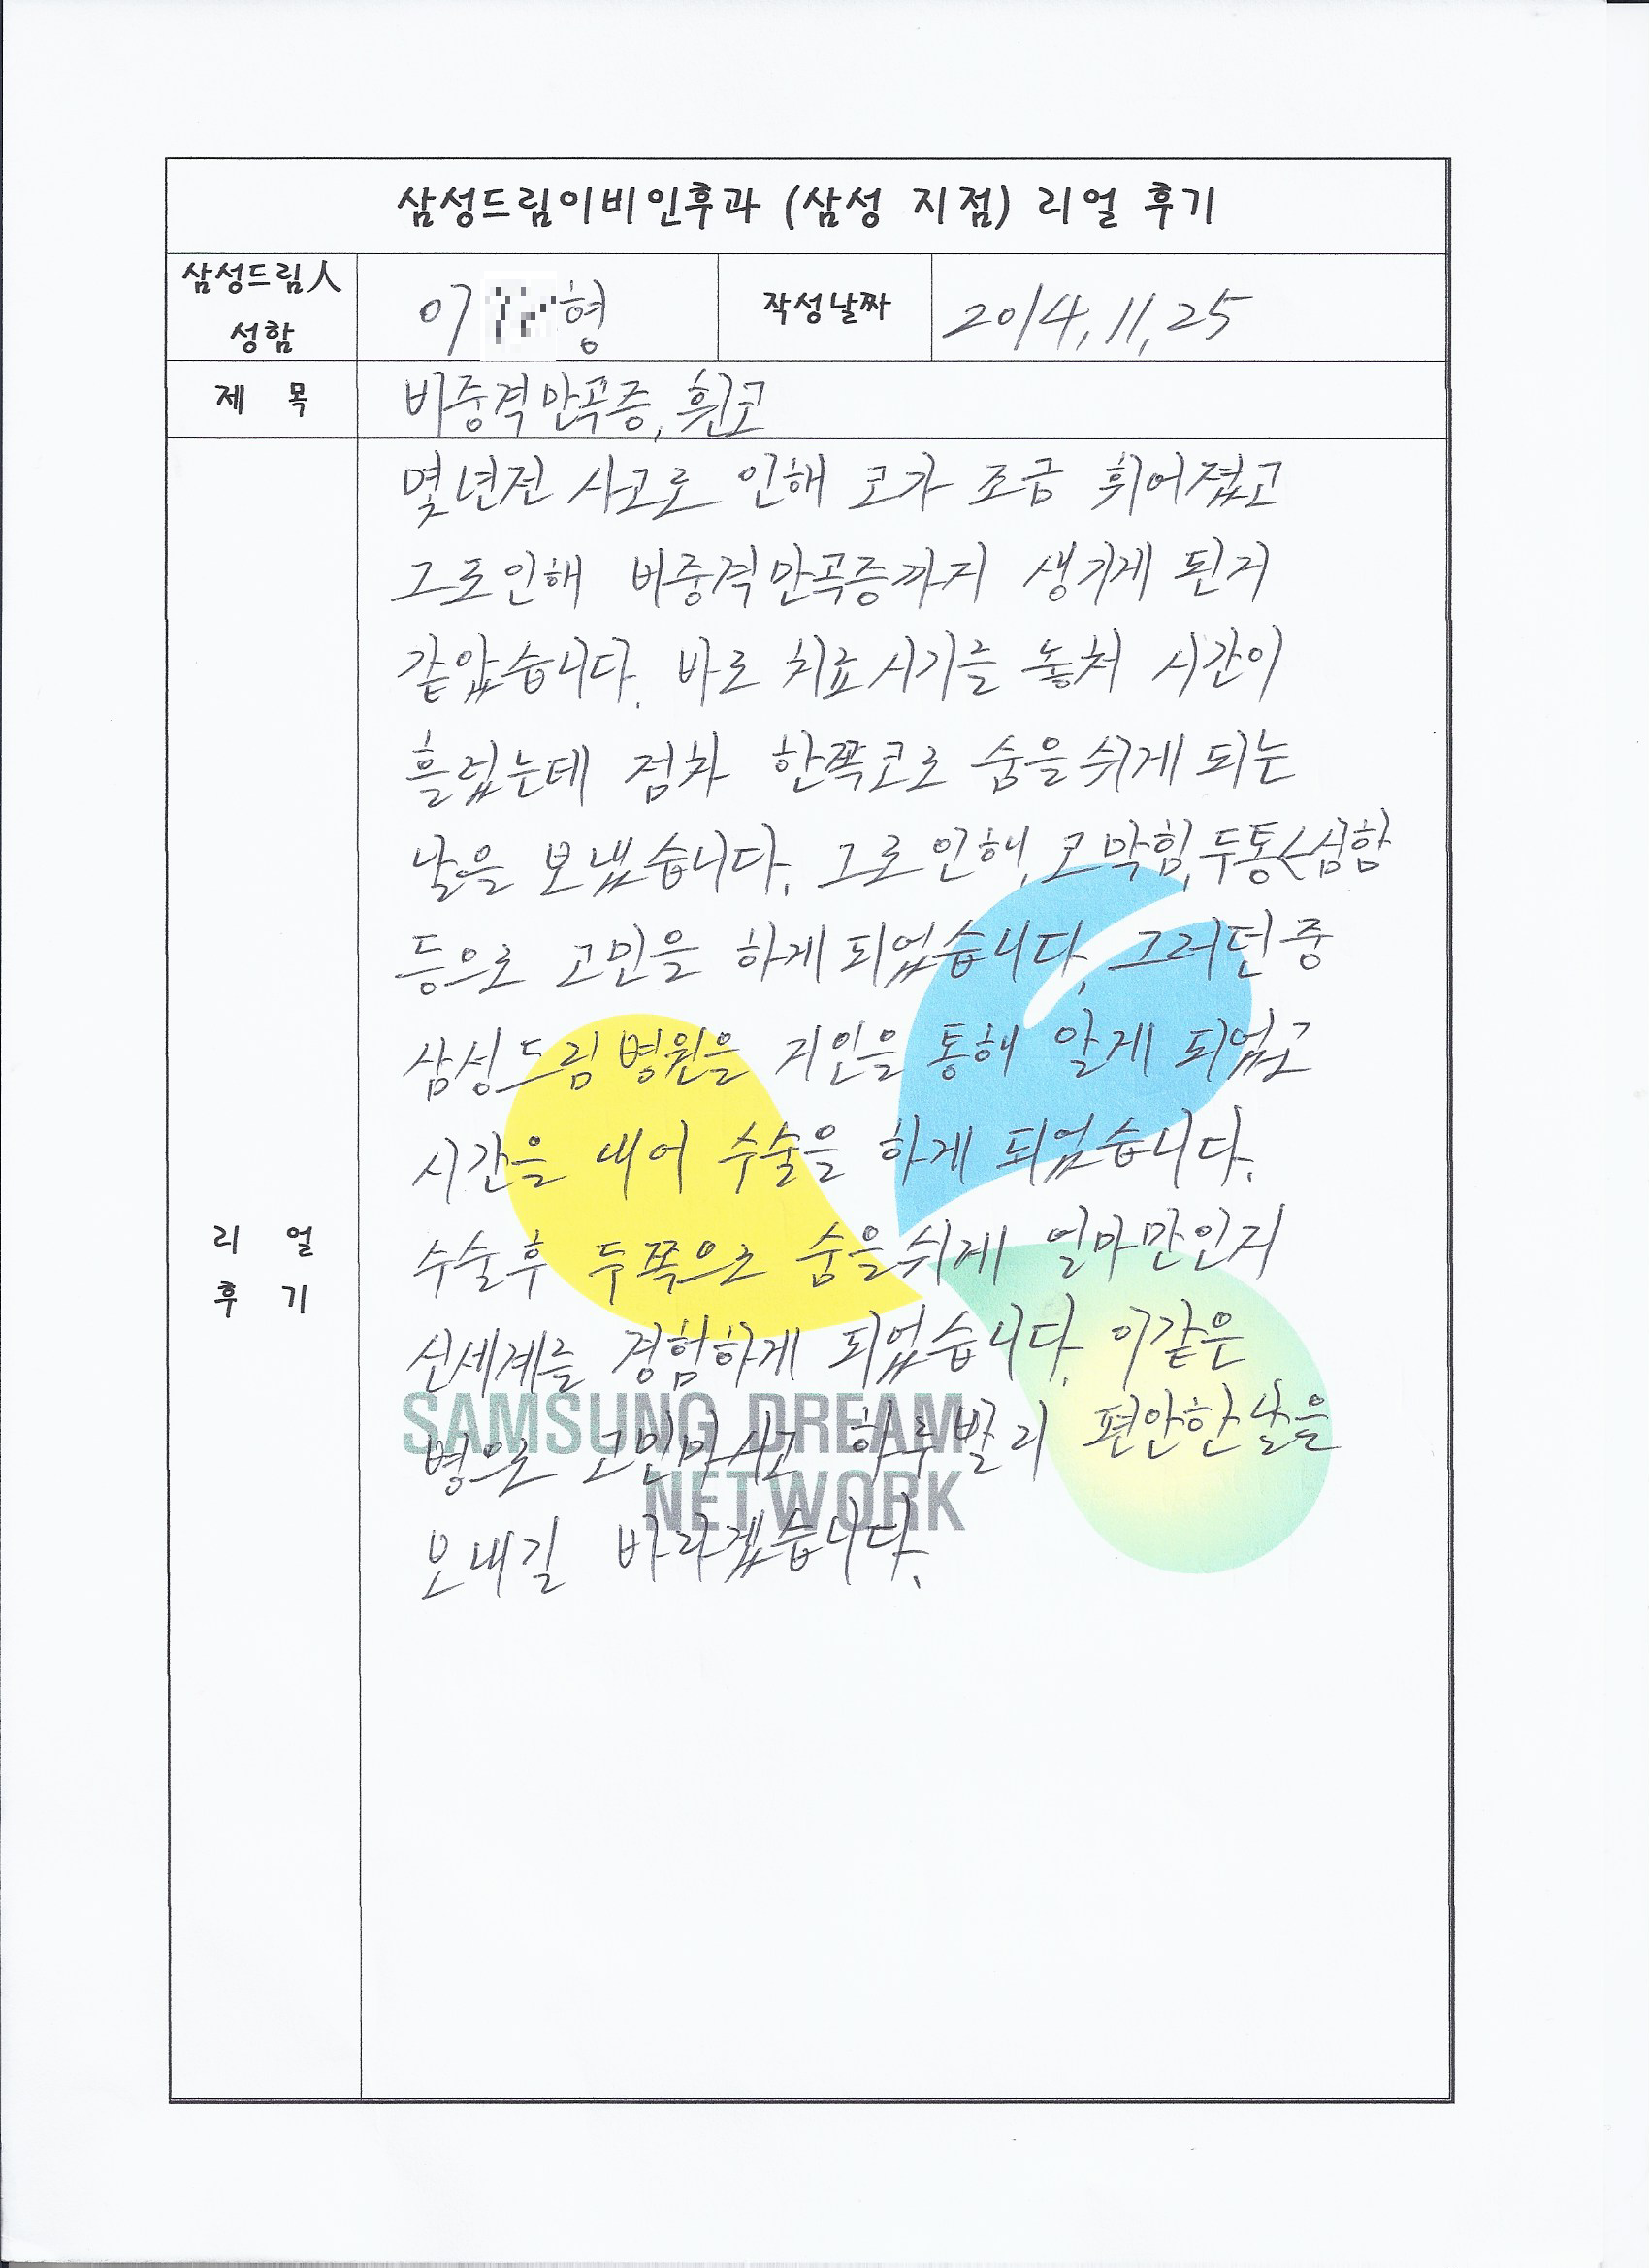 삼성드림이비인후과 (삼성 지점) 리얼 후기
삼성드림人
성함
이 형
작성날짜
2014, 11, 25
제 목
비중격만곡증, 휜코
리 얼
후 기
몇년전 사고로 인해 코가 조금 휘어졌고
그로인해 비중격만곡증까지 생기게 된거
같았습니다. 바로 치료시기를 놓쳐 시간이
흘렀는데 점차 한쪽코로 숨을쉬게 되는
날을 보냈습니다. 그로인해, 코막힘, 두통<심함
등으로 고민을 하게되었습니다. 그러던중
삼성드림병원을 지인을 통해 알게 되었고
시간을 내어 수술을 하게 되었습니다.
수술후 두쪽으로 숨을쉬게 얼마만인지
신세계를 경험하게 되었습니다. 이같은
병으로 고민마시고 하루빨리 편안한날은
보내길 바라겠습니다.
SAMSUNG DREAM
NETWORK